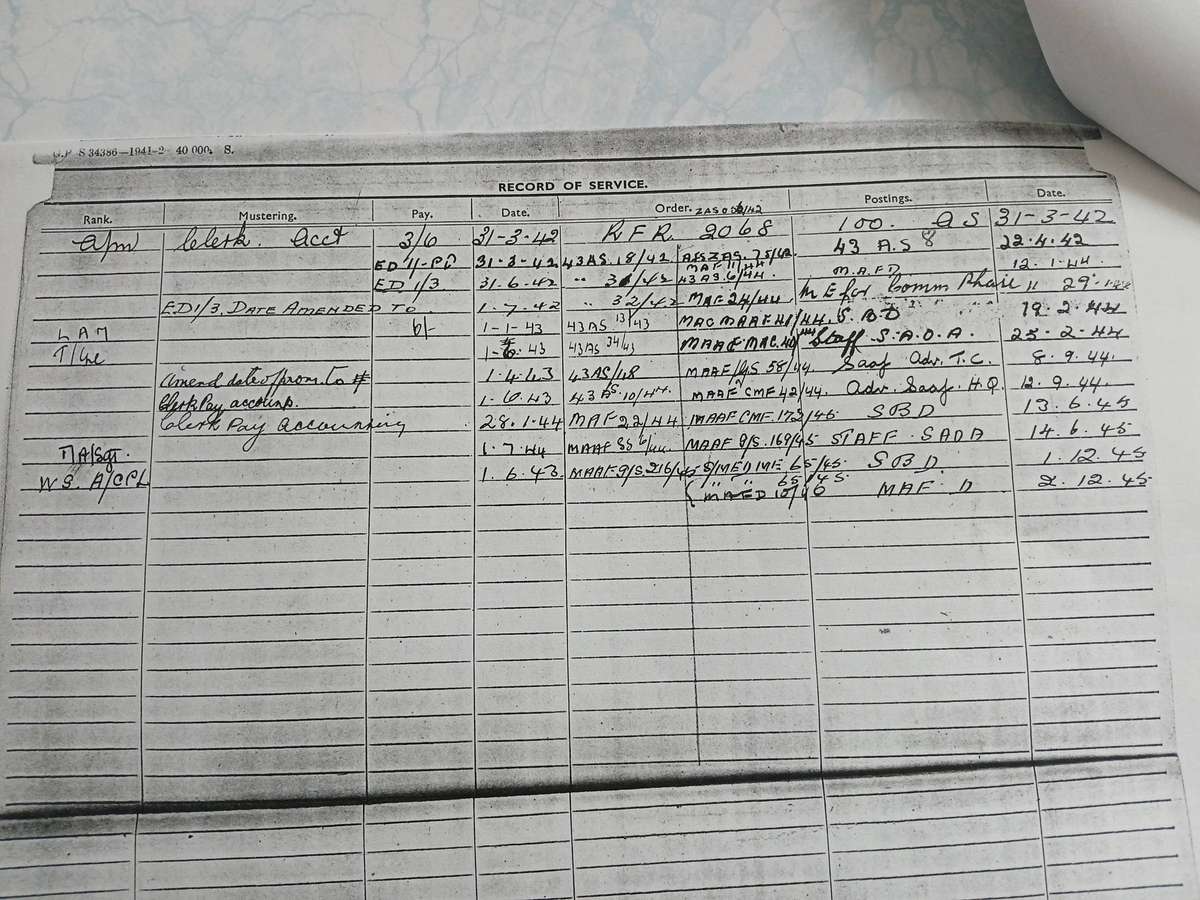 G.P. S 34386—1941-2 40 000. S.
RECORD OF SERVICE.
Rank. Mustering. Pay. Date. Order. Postings. Date.
Apm Clerk. Acct 3/6 31-3-42 R.F.R. 2068 100. AS 31-3-42
ED 1/- 31-3-42 43AS.18/42 75/42 43 A.S 22.4.42
ED 1/3 31.6.42 43AS.6/44 M.A.F.D 12.1.44
ED 1/3 DATE AMENDED TO 1.7.42 " 32/42 MAF 24/44 M E for Comm Phase 29.
L A M 6/- 1-1-43 43AS 13/43 MAC MAAF 41/44 S.B.D 19.2.44
1-6.43 43AS 34/43 Staff S.A.D.A. 25-2-44
Amend date of prom. to 1.4.43 43AS/48 MAAF/9/S 58/44 Saaf Adv. T.C. 8.9.44.
Clerk Pay account. 1.10.43 MAAF CMF 42/44 Adv. Saaf. H.Q. 12.9.44.
Clerk Pay accounting 28.1.44 MAF 22/44 MAAF CMF. 173/45 SBD 13.6.45
T/A/Sgt. 1.7.44 MAAF 9/S.169/45 STAFF. SADA 14.6.45
W.S. A/CPL 1.6.43 MAAF 9/S 216/45 S/MED ME 65/45. SBD. 1.12.45
" " " 65/45.
MAF. D 2.12.45